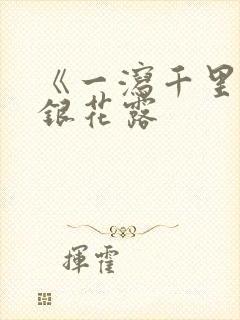 《一瀉千里
銀花露
揮霍